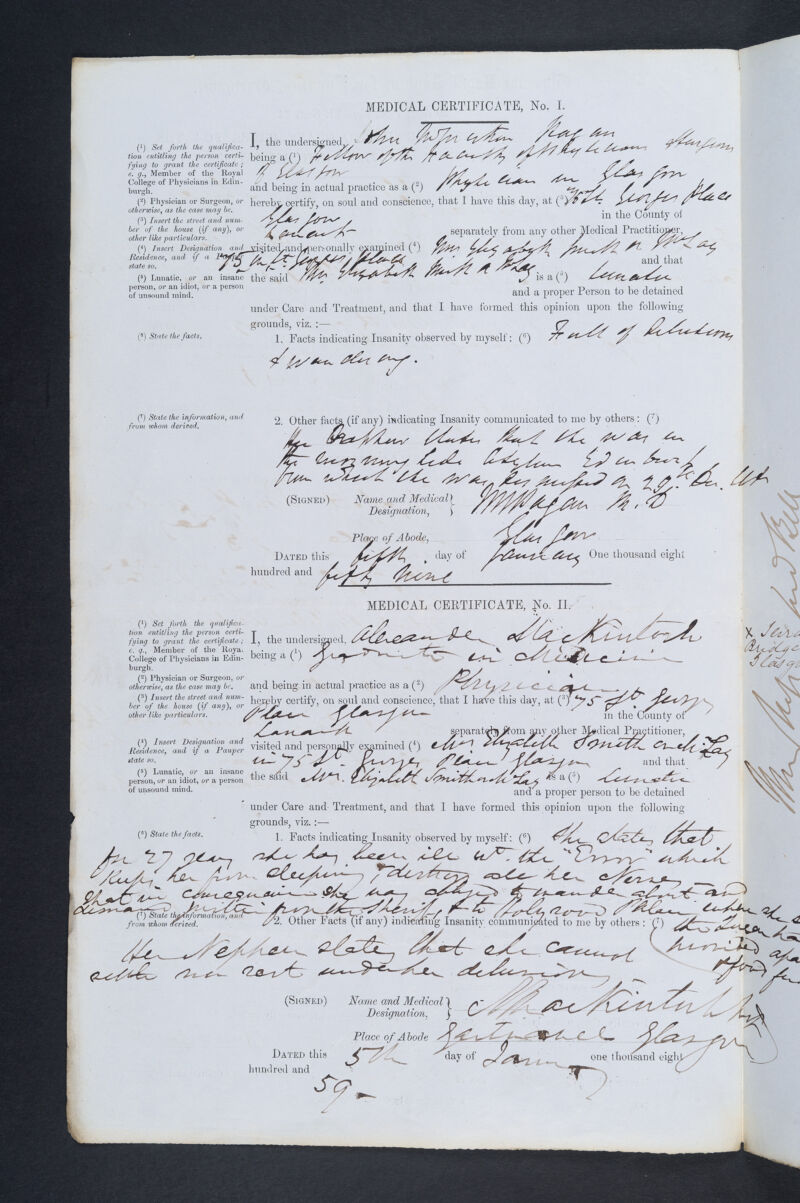 MEDICAL CERTIFICATE, No. I.
(1) Set forth the qualification
tion entitling the person certi-
fying to grant the certificate;
e. g., Member of the Royal
College of Physicians in Edin-
burgh.
(2) Physician or Surgeon, or
otherwise, as the case may be.
(3) Insert the street and num-
ber of the house (if any), or
other like particulars.
(4) Insert Designation and
Residence, and if a Pauper
state so.
(5) Lunatic, or an insane
person, or an idiot, or a person
of unsound mind.
I, the undersigned, John Hagan
being a (1) Fellow of the Faculty of Physicians & Surgeons
Glasgow
and being in actual practice as a (2) Physician in Glasgow
hereby certify, on soul and conscience, that I have this day, at (3) 75 St. Georges Place
Glasgow in the County of
Lanark separately from any other Medical Practitioner,
visited and personally examined (4) Mrs Elizabeth Smith or McLay
75 St. Georges Place and that
the said Mrs Elizabeth Smith or McLay is a (5) Lunatic
and a proper Person to be detained
under Care and Treatment, and that I have formed this opinion upon the following
grounds, viz. :—
(6) State the facts.
1. Facts indicating Insanity observed by myself: (6) Full of delusions
& wandering.
(7) State the information, and
from whom derived.
2. Other facts (if any) indicating Insanity communicated to me by others: (7)
Her Nephew states that she was in
the Morningside Asylum Edinburgh
from which she was dismissed on 29th Dec. Ult
(SIGNED) Name and Medical Designation, Hagan M.D
Place of Abode, Glasgow
DATED this fifth day of January One thousand eight
hundred and fifty nine
MEDICAL CERTIFICATE, No. II.
(1) Set forth the qualifica-
tion entitling the person certi-
fying to grant the certificate;
e. g., Member of the Royal
College of Physicians in Edin-
burgh.
(2) Physician or Surgeon, or
otherwise, as the case may be.
(3) Insert the street and num-
ber of the house (if any), or
other like particulars.
(4) Insert Designation and
Residence, and if a Pauper
state so.
(5) Lunatic, or an insane
person, or an idiot, or a person
of unsound mind.
I, the undersigned, Alexander Mackintosh
being a (1) Graduate in Medicine
and being in actual practice as a (2) Physician
hereby certify, on soul and conscience, that I have this day, at (3) 75 St. Georges
Place Glasgow in the County of
Lanark separately from any other Medical Practitioner,
visited and personally examined (4) Mrs Elizabeth Smith or McLay
in 75 St. Georges Place Glasgow and that
the said Mrs. Elizabeth Smith or McLay is a (5) Lunatic
and a proper person to be detained
under Care and Treatment, and that I have formed this opinion upon the following
grounds, viz. :—
(6) State the facts.
1. Facts indicating Insanity observed by myself: (6) She states that
for 27 years she has been ill wt. the "Error" which
keeps her from sleeping & destroys all her Nerves
that in consequence she was obliged to wander about and
demand justice from the Sheriff & to Holyrood Palace where she
the Queen ha
provided apa
& food for
(7) State the information, and
from whom derived.
2. Other Facts (if any) indicating Insanity communicated to me by others: (7)
Her Nephew states that she cannot
settle nor rest under her delusions
(SIGNED) Name and Medical Designation, A Mackintosh
Place of Abode Gartnavel Glasgow
DATED this 5th day of January one thousand eight
hundred and
59-
x
Bridge
Glasg
Bell